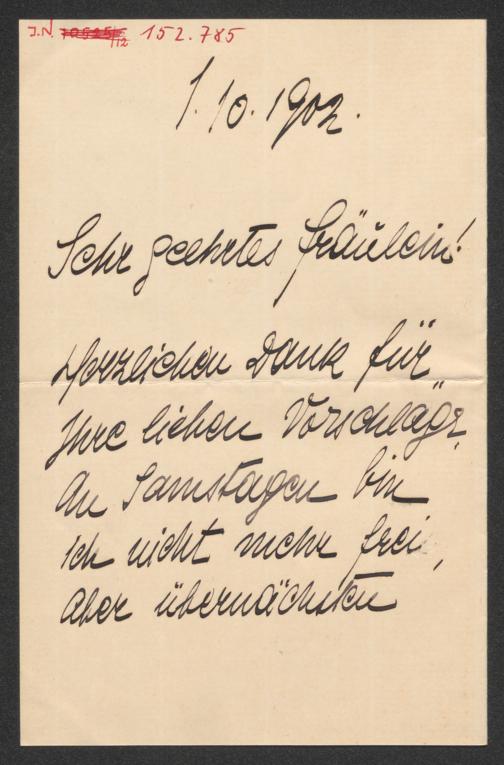 J.N. 152.785
1. 10. 1902.
Sehr geehrtes Fräulein!
Herzlichen Dank für
Ihre lieben Vorschläge,
An Samstagen bin
ich nicht mehr frei,
aber übernächsten